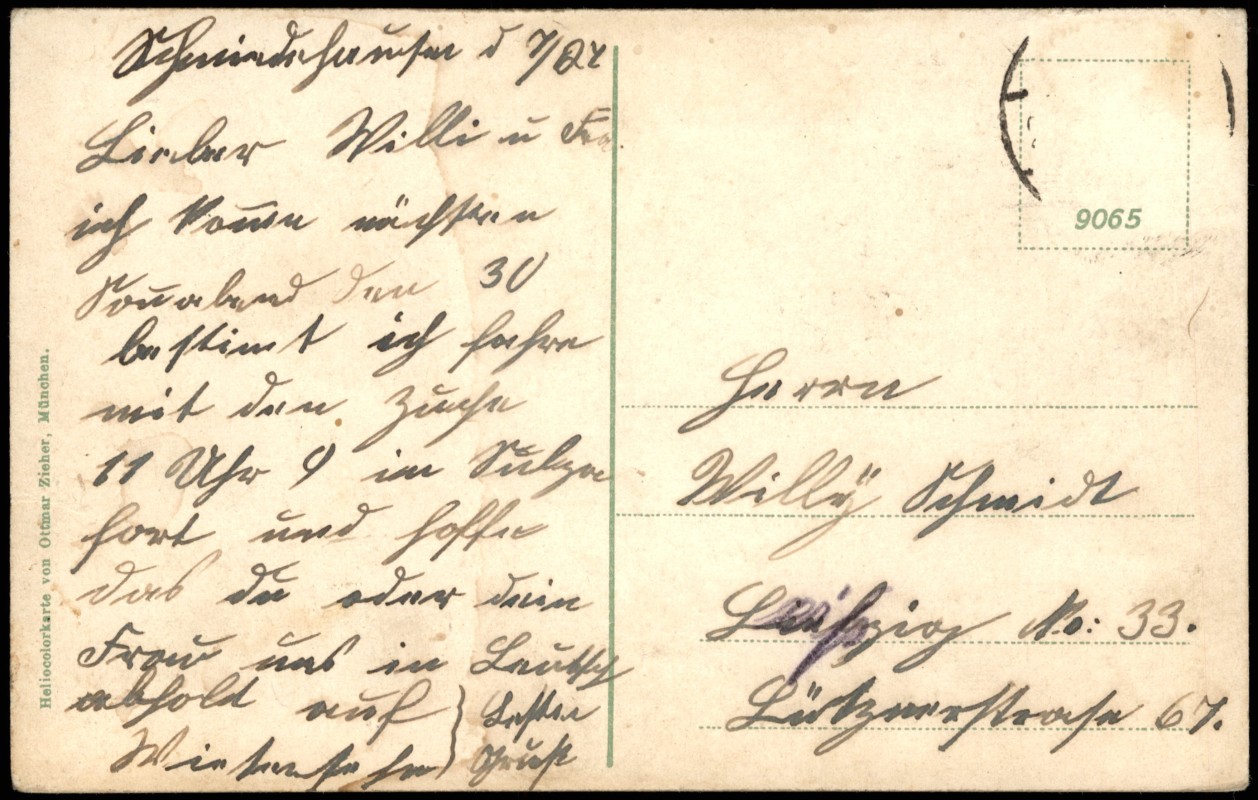 Schmiedehausen d 7/
Lieber Willi u Fra
ich komme nächsten
Sonnabend den 30
bestimt ich fahre
mit den Zuche
11 Uhr 9 im Sulza
fort und hoffe
das du oder dein
Frau uns in Leutsch
abholt auf
Wiedersehn
Besten
Gruß
Heliocolorkarte von Ottmar Zieher, München.
9065
Herrn
Willÿ Schmidt
Leipzig No: 33.
Lütznerstrase 67.